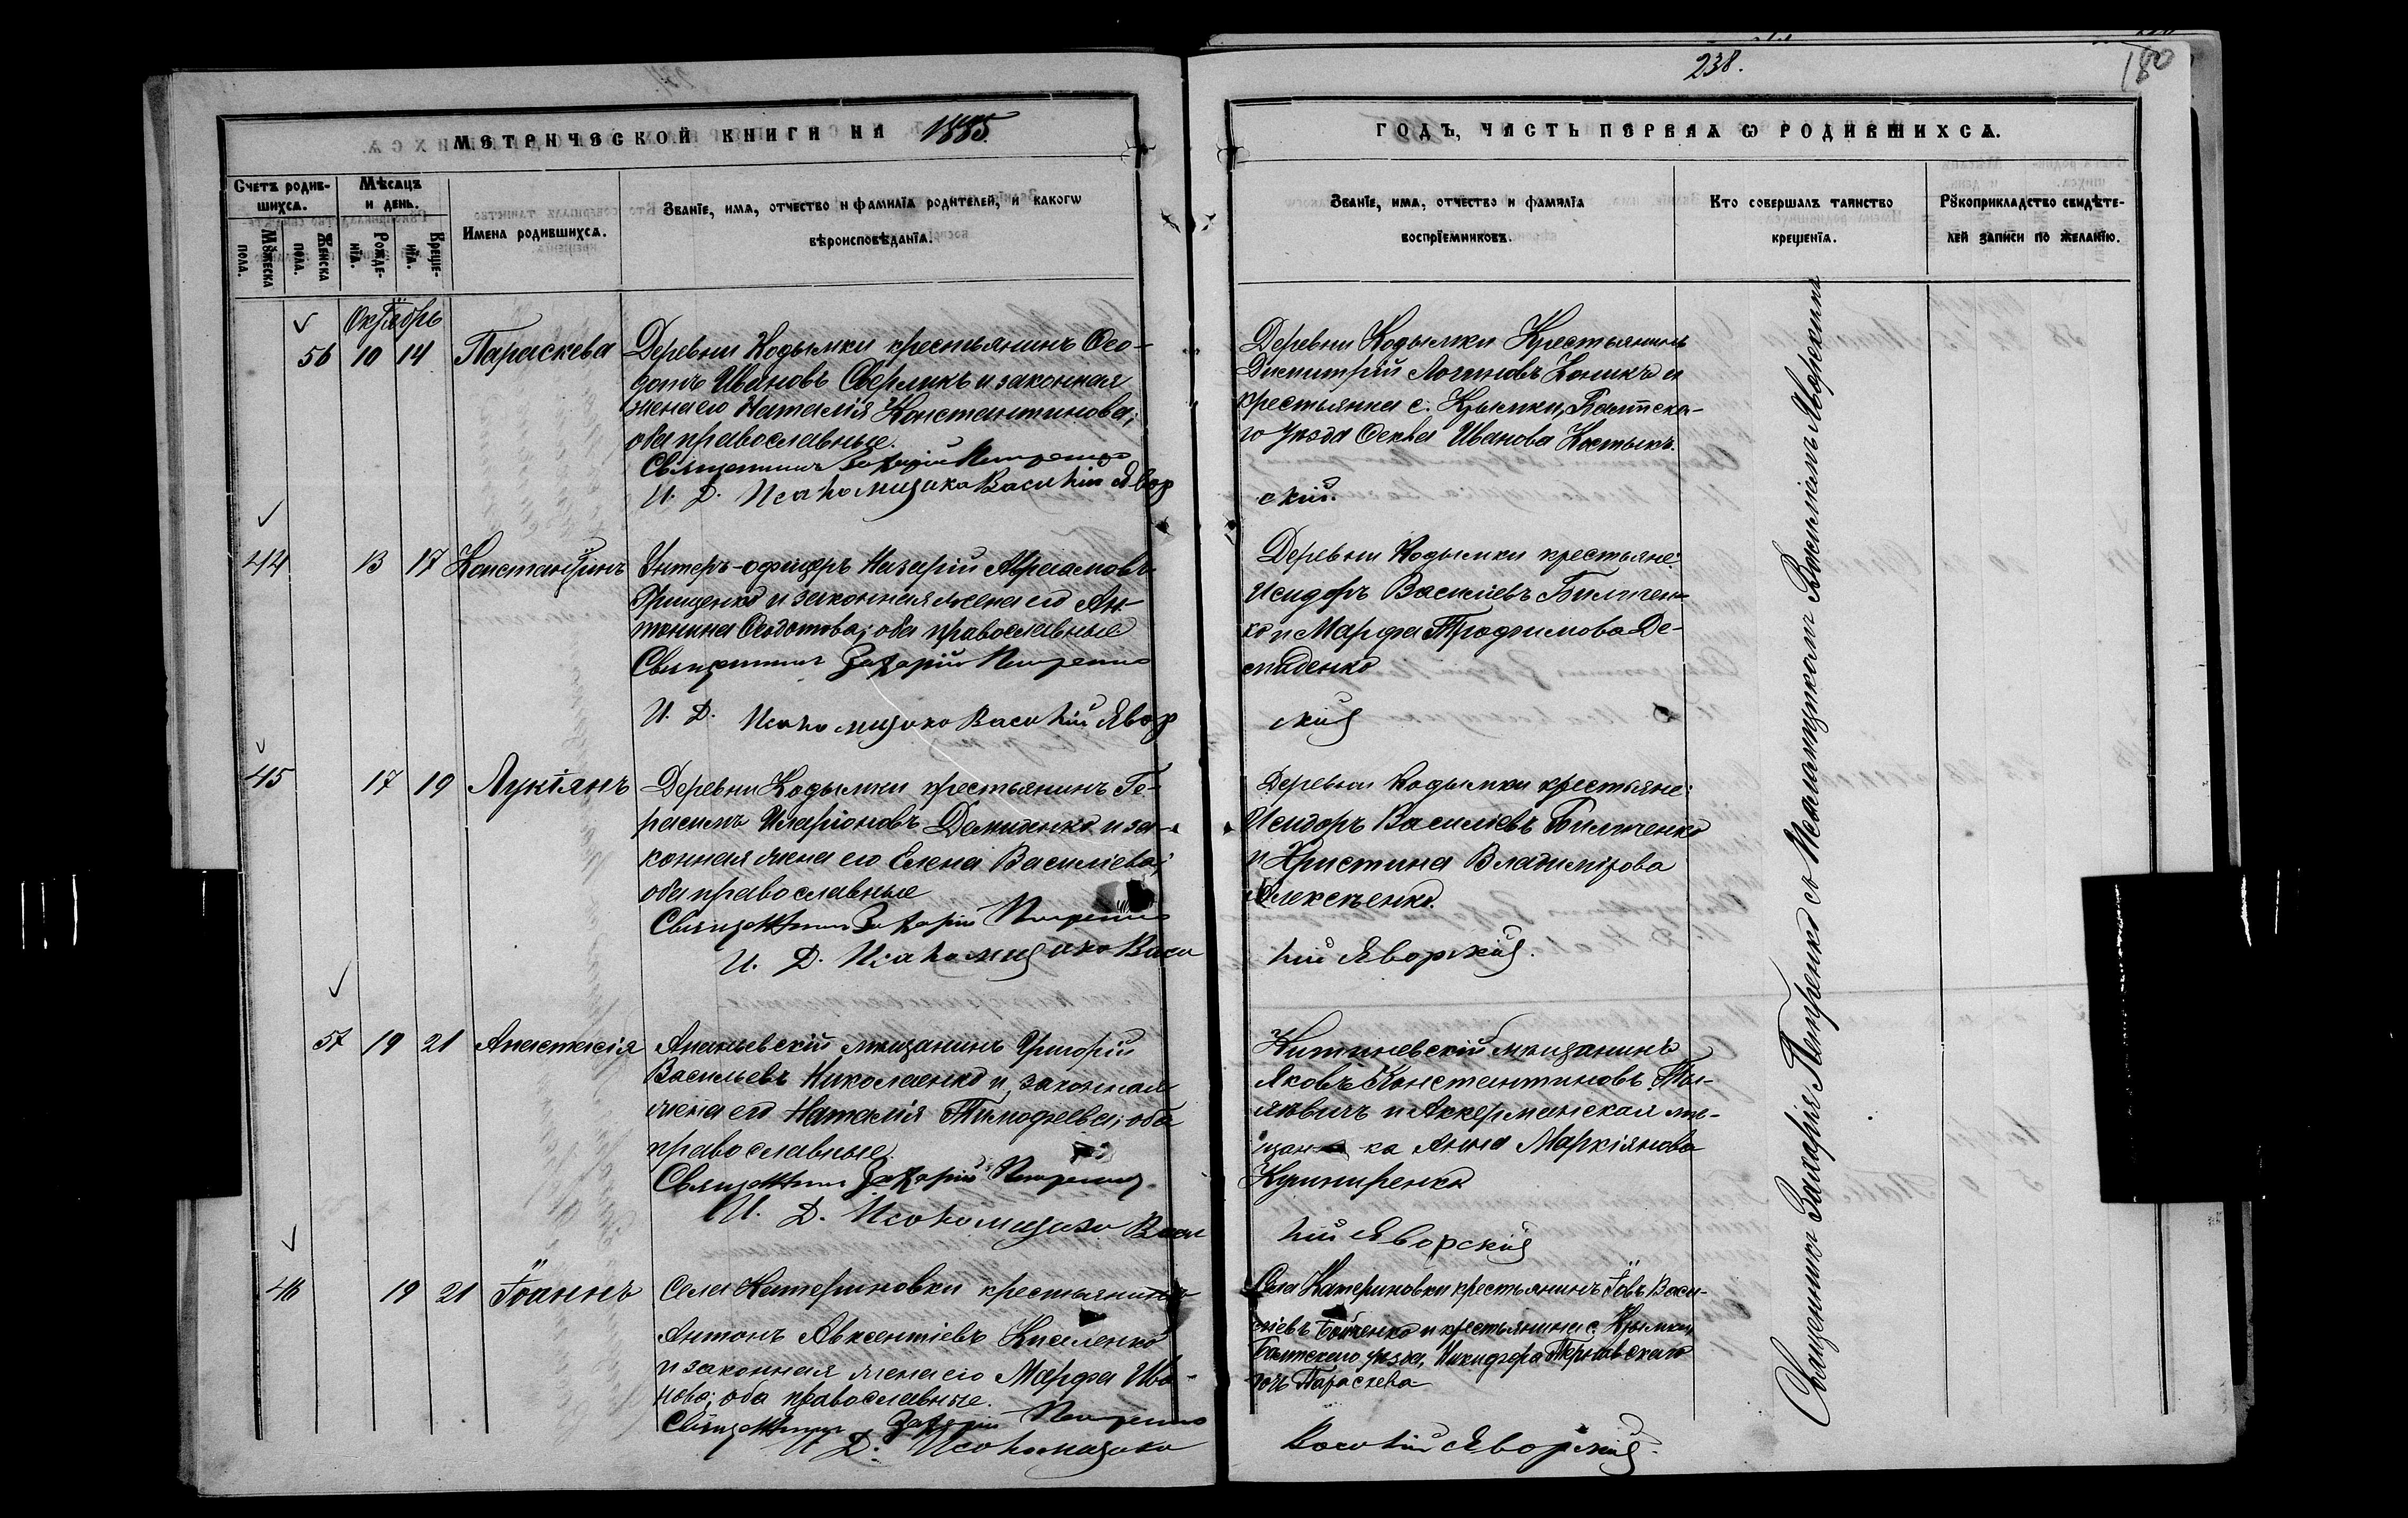 238.
180
МЕТРИЧЕСКОЙ КНИГИ НА 1885
ГОДЪ, ЧАСТЬ ПЕРВАЯ Ѡ РОДИВШИХСѦ.
Счетъ родившихсѧ.
Мѣсѧцъ и день.
Имена родившихсѧ.
Званїе, имѧ, отчество и фамилїѧ родителей, и какогѡ вѣроисповѣданїѧ.
Мꙋжеска пола.
Женска пола.
Рожденїѧ.
Крещенїѧ.
Званїе, имѧ, отчество и фамилїѧ воспрїемниковъ.
Кто совершалъ таинство крещенїѧ.
Рꙋкоприкладство свидѣтелей записи по желанїю.
Октябрь
56 10 14 Параскева
Деревни Кодымки крестьянинъ Ѳео-
дотъ Ивановъ Сверликъ и законная
жена его Наталія Константинова;
оба православные.
Священникъ Захарій Петренко
И. Д. Псаломщика Василій Явор
Деревни Кодымки Крестьянинъ
Димитрій Логиновъ Коникъ и
крестьянка с. Крымки, Балтска-
го уѣзда Ѳекла Иванова Костыкъ.
скій.
44 13 17 Константинъ
Унтеръ-офицеръ Назарій Авраамовъ
Грищенко и законная жена его Ан-
тонина Ѳеодотова; оба православные
Священникъ Захарій Петренко
И. Д. Псаломщика Василій Явор
Деревни Кодымки крестьяне:
Исидоръ Василіевъ Биличенко
ко и Марѳа Трофимова Де-
миденко
скій
45 17 19 Лукіянъ
Деревни Кодымки крестьянинъ Ге-
расимъ Иларіоновъ Демиденко и за-
конная жена его Елена Василіева;
оба православные
Священникъ Захарій Петренко
И. Д. Псаломщика Васи
Деревни Кодымки крестьяне:
Исидоръ Василіевъ Биличенко
и Христина Владимірова
Алексѣенко.
лій Яворскій.
57 19 21 Анастасія
Ананьевскій мѣщанинъ Григорій
Васильевъ Николаенко и законная
жена его Наталія Тимофеева; оба
православные.
Священникъ Захарій Петренко
И. Д. Псаломщика Васи
Кишиневскій мѣщанинъ
Яковъ Константиновъ
и Аккерманская мѣ-
щан-ка Анна Маркіянова
Кушниренко
лій Яворскій
46 19 21 Іоаннъ
Села Катериновки крестьянинъ
Антонъ Авксентіевъ Киселенко
и законная жена его Марѳа Ива-
нова; оба православные.
Священникъ Захарій Петренко
И. Д. Псаломщика
Села Катериновки крестьянинъ Іовъ Васи-
ліевъ Бойченко и крестьянина с. Крымки,
Балтскаго уѣзда, Никифора Тернавскаго
дочь Параскева
Василій Яворскій.
Священникъ Захарія Петренко съ Псаломщикомъ Василіемъ Яворскимъ